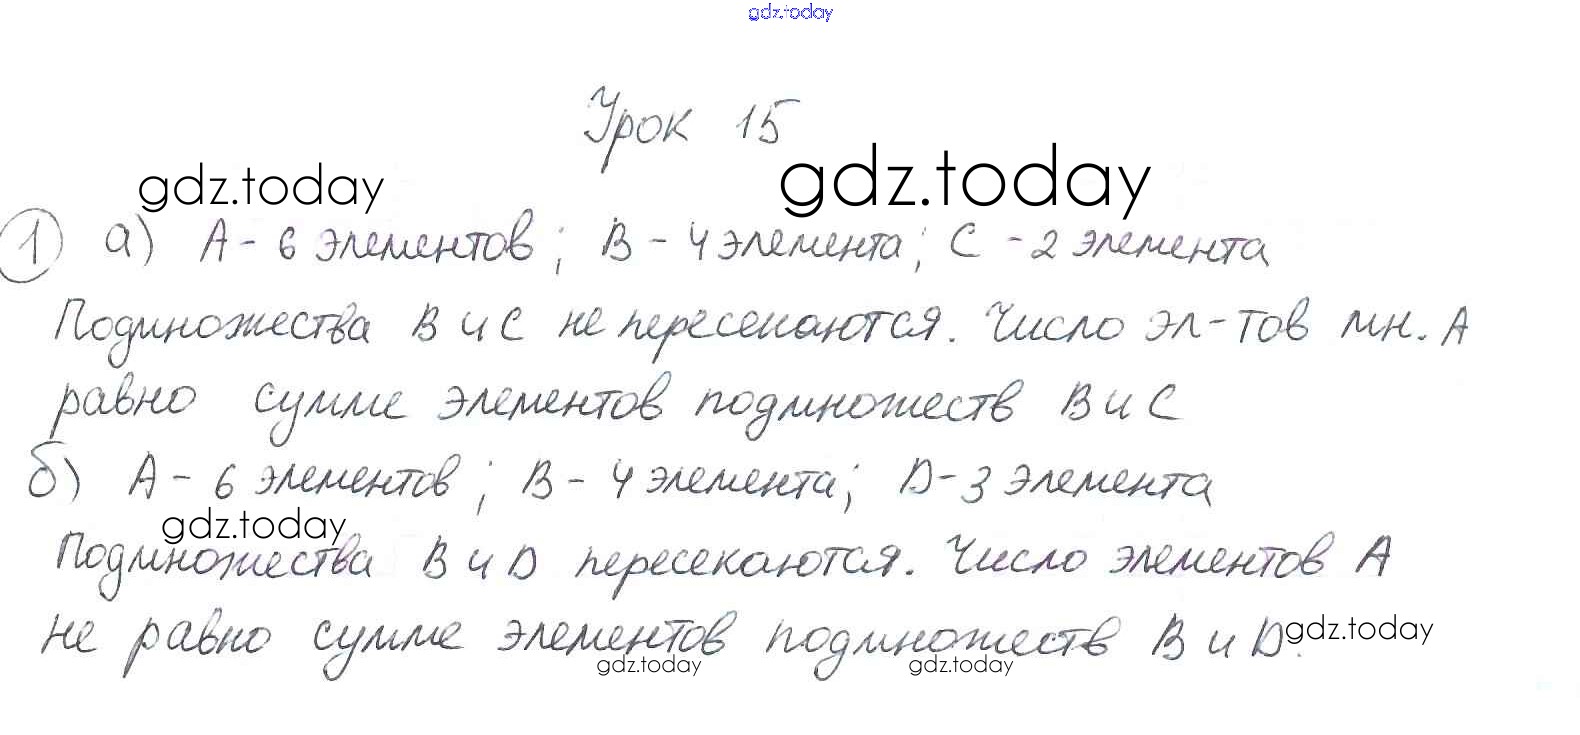 gdz.today
Урок 15
gdz.today gdz.today
1 а) А - 6 элементов; В - 4 элемента; С - 2 элемента
Подмножества В и С не пересекаются. Число эл-тов мн. А
равно сумме элементов подмножеств В и С
б) А - 6 элементов; В - 4 элемента; D - 3 элемента
gdz.today
Подмножества В и D пересекаются. Число элементов А
не равно сумме элементов подмножеств В и D.
gdz.today
gdz.today gdz.today